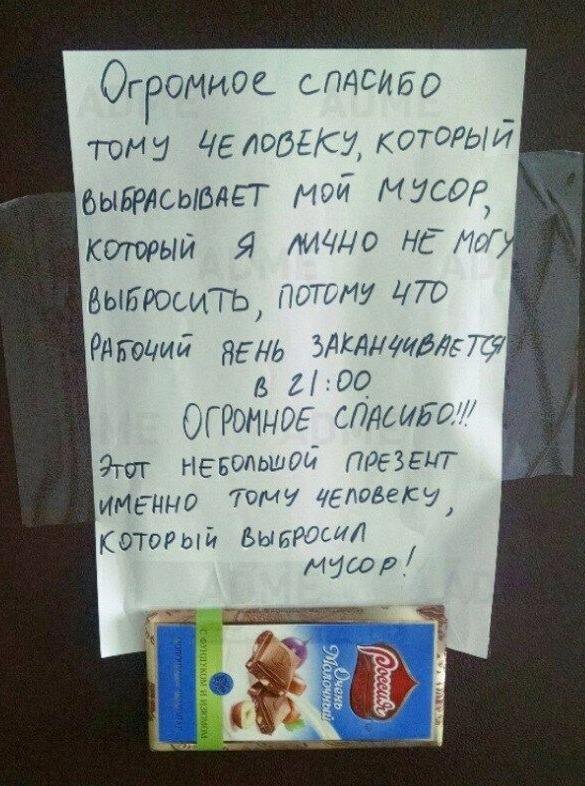 Огромное спасибо
тому человеку, который
выбрасывает мой мусор,
который я лично не могу
выбросить, потому что
рабочий день заканчивается
в 21:00.
Огромное спасибо!!!
Этот небольшой презент
именно тому человеку,
который выбросил
мусор!
Россия
Очень
Молочный
С фундуком и изюмом
ADME